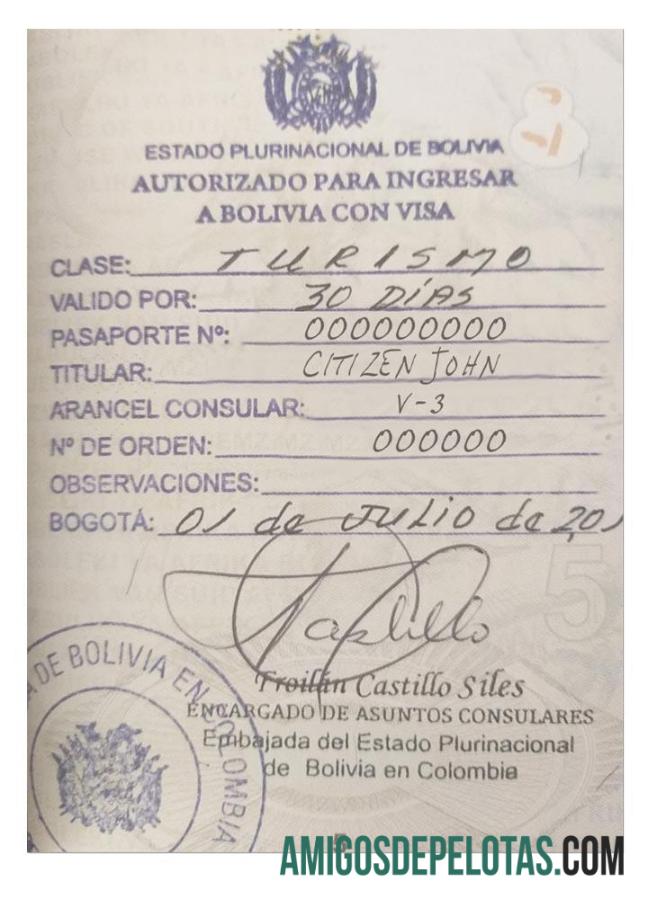 ESTADO PLURINACIONAL DE BOLIVIA
AUTORIZADO PARA INGRESAR
A BOLIVIA CON VISA
CLASE: TURISMO
VALIDO POR: 30 DÍAS
PASAPORTE Nº: 000000000
TITULAR: CITIZEN JOHN
ARANCEL CONSULAR: V-3
Nº DE ORDEN: 000000
OBSERVACIONES:
BOGOTÁ: 01 de JULIO de 201
Castillo
Troilán Castillo Siles
ENCARGADO DE ASUNTOS CONSULARES
Embajada del Estado Plurinacional
de Bolivia en Colombia
DE BOLIVIA EN COLOMBIA
5
AMIGOSDEPELOTAS.COM